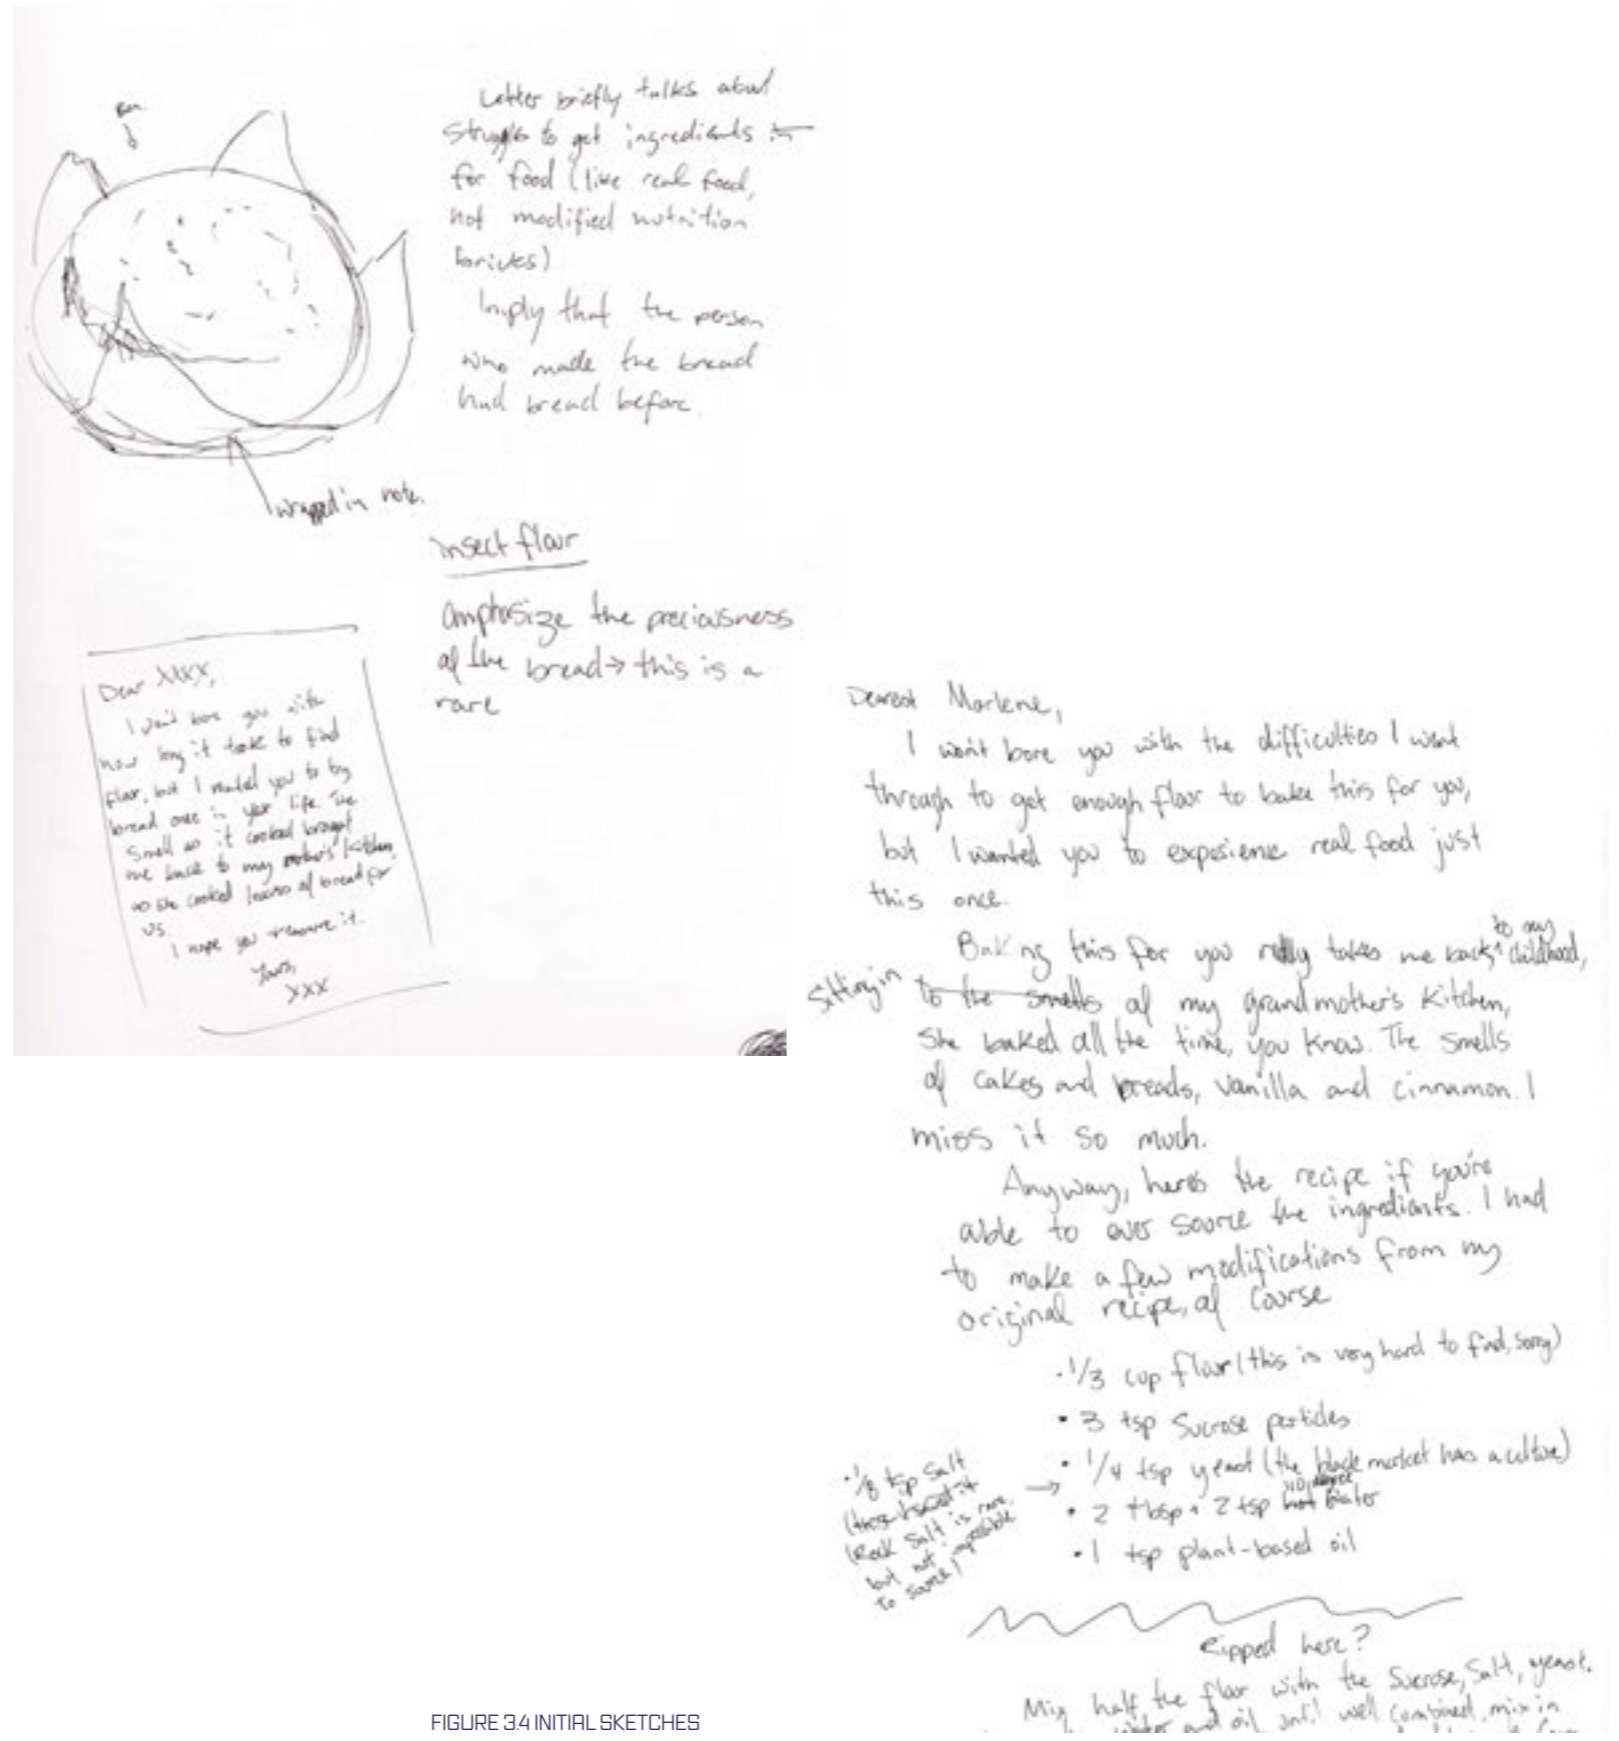 Bun.
Letter briefly talks about
struggle to get ingredients
for food (like real food,
not modified nutrition
bricks)
Imply that the person
who made the bread
had bread before.
wrapped in note.
insect flour
emphasize the preciousness
of the bread → this is a
rare
Dear XXXX,
I won't bore you with
how long it took to find
flour, but I wanted you to try
bread once in your life. The
smell as it cooked brought
me back to my mother's kitchen
as she cooked loaves of bread for
us.
I hope you treasure it.
Yours,
XXX
Dearest Marlene,
I won't bore you with the difficulties I went
through to get enough flour to bake this for you,
but I wanted you to experience real food just
this once.
Baking this for you really takes me back to my childhood,
sitting in to the smells of my grandmother's kitchen,
She baked all the time, you know. The smells
of cakes and breads, vanilla and cinnamon. I
miss it so much.
Anyway, here's the recipe if you're
able to ever source the ingredients. I had
to make a few modifications from my
original recipe, of course
• 1/3 cup flour (this is very hard to find, sorry)
• 3 tsp Sucrose particles
• 1/4 tsp yeast (the black market has a culture)
• 2 tbsp + 2 tsp hot water
• 1 tsp plant-based oil
• 1/8 tsp Salt
(Rock Salt is rare
but not impossible
to source)
Ripped here?
Mix half the flour with the Sucrose, Salt, yeast.
water and oil until well combined, mix in
FIGURE 3.4 INITIAL SKETCHES